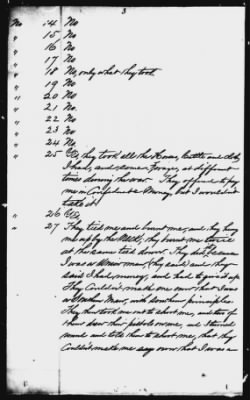 3
No 14 No
" 15 No
" 16 No
" 17 No
" 18 No, only what they took
" 19 No
" 20 No
" 21 No.
" 22 No
" 23 No
" 24 No,
" 25 They took all the Corn, Cattle and
I had, and some Forage, at different
times during the war. They offered to pay
me in Confederate Money, but I wouldn't
take it
" 26
" 27 They tied me and burnt me, and they hung
me up by the Neck, they burnt me twice
at the same time down. They did, because
I was a Union man (they said) and they
said I had money, and had to give it up
They Couldn't make me own that I was
a Southern Man, with Southern principles.
They then took me out to shoot me, and two of
them drew their pistols on me, and I turned
round and told them to shoot me, that they
Couldn't make me say even that I was a